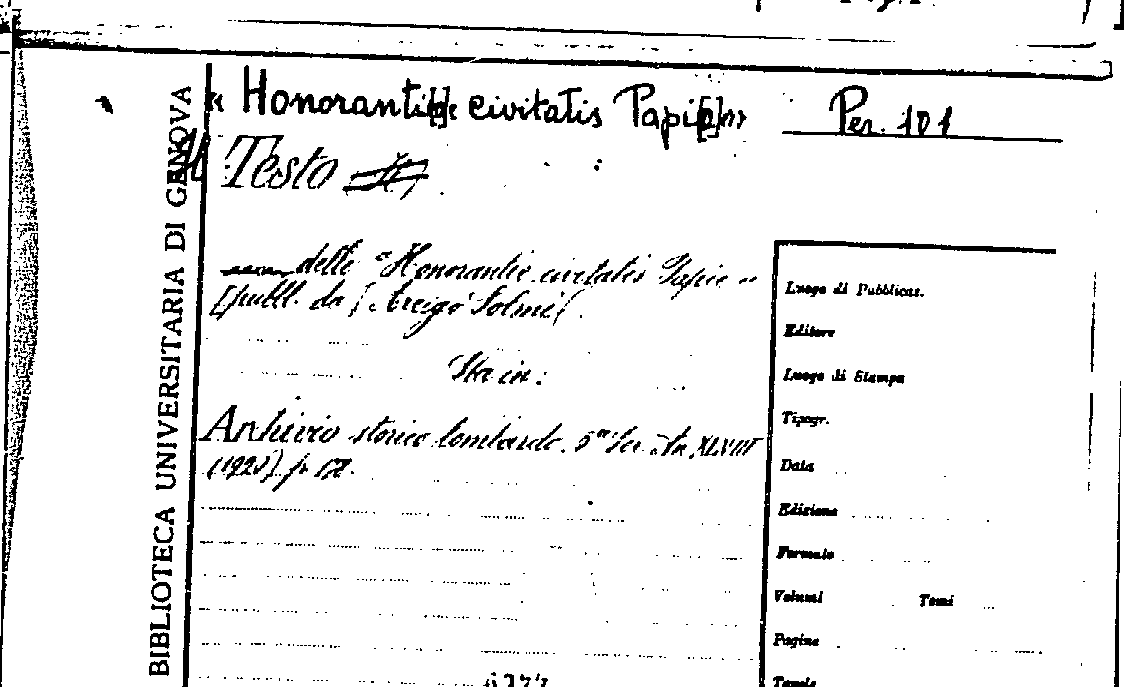 BIBLIOTECA UNIVERSITARIA DI GENOVA
« Honoranti[a]e civitatis Papi[a]e»
Per. 101
Il Testo
delle "Honorantie civitatis Papie"
[pubbl. da] Arrigo Solmi.
Sta in:
Archivio storico lombardo. 5ª Ser. An. XLVIII
Luogo di Pubblicaz.
Editore
Luogo di Stampa
Tipogr.
Data
Edizione
Formato
Volumi Tomi
Pagine
Tavole